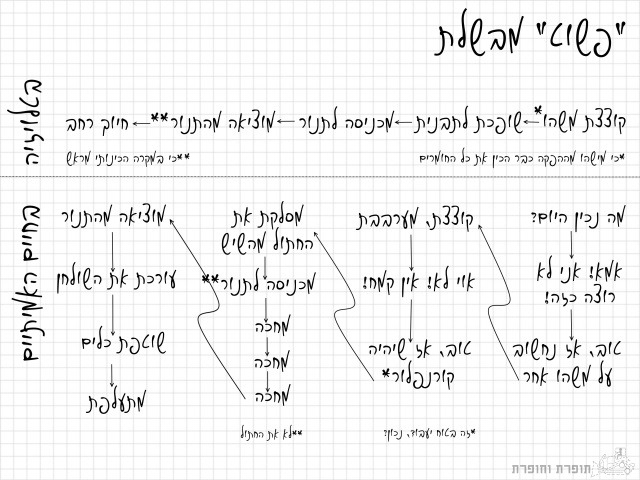 "פשוט" מבשלת
בטלוויזיה
קוצצת משהו* ← שופכת לתבנית ← מכניסה לתנור ← מוציאה מהתנור** ← חיוך רחב
*כי מישהו מההפקה כבר הכין את כל החומרים
**כי במקרה הכינותי מראש
בחיים האמיתיים
מה נכין היום?
אמא! אני לא
רוצה כזה!
טוב, אז נחשוב
על משהו אחר
קוצצת, מערבבת
אוי לא! אין קמח!
טוב, אז שיהיה
קורנפלור*
*זה בטוח יעבוד, נכון?
מסלקת את
החתול מהשיש
מכניסה לתנור**
מחכה
מחכה
מחכה
**לא את החתול
מוציאה מהתנור
עורכת את השולחן
שוטפת כלים
מתעלפת
תופרת וחופרת